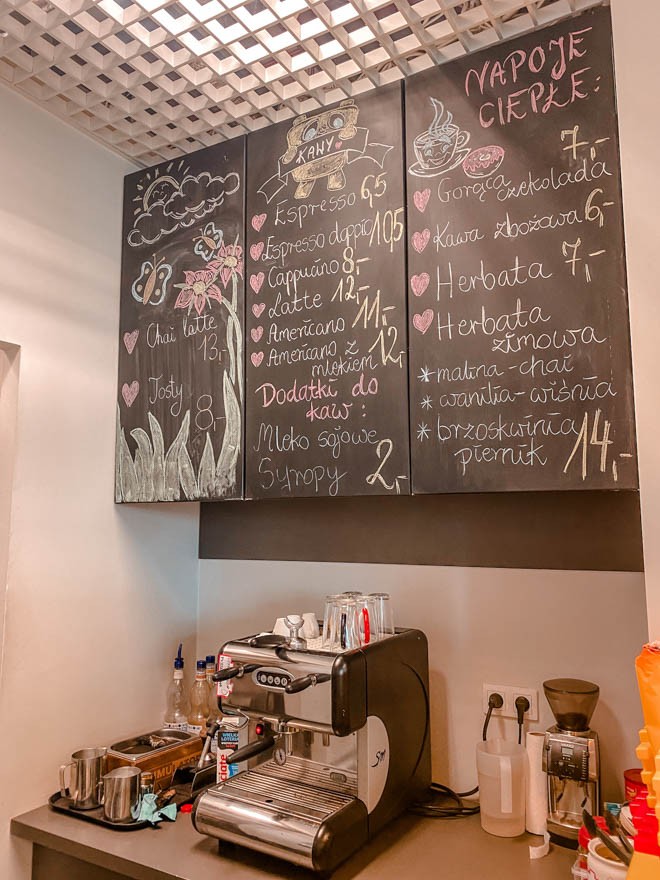 Chai latte
13,-
Tosty
8,-
KAWY
Espresso 6,5
Espresso doppio 10,5
Cappucino 8,-
Latte 12,-
Americano 11,-
Americano z
mlekiem 12,-
Dodatki do
kaw:
Mleko sojowe
Syropy 2,-
NAPOJE
CIEPŁE:
Gorąca czekolada 7,-
Kawa zbożowa 6,-
Herbata 7,-
Herbata
zimowa
* malina - chai
* wanilia - wiśnia
* brzoskwinia
piernik 14,-